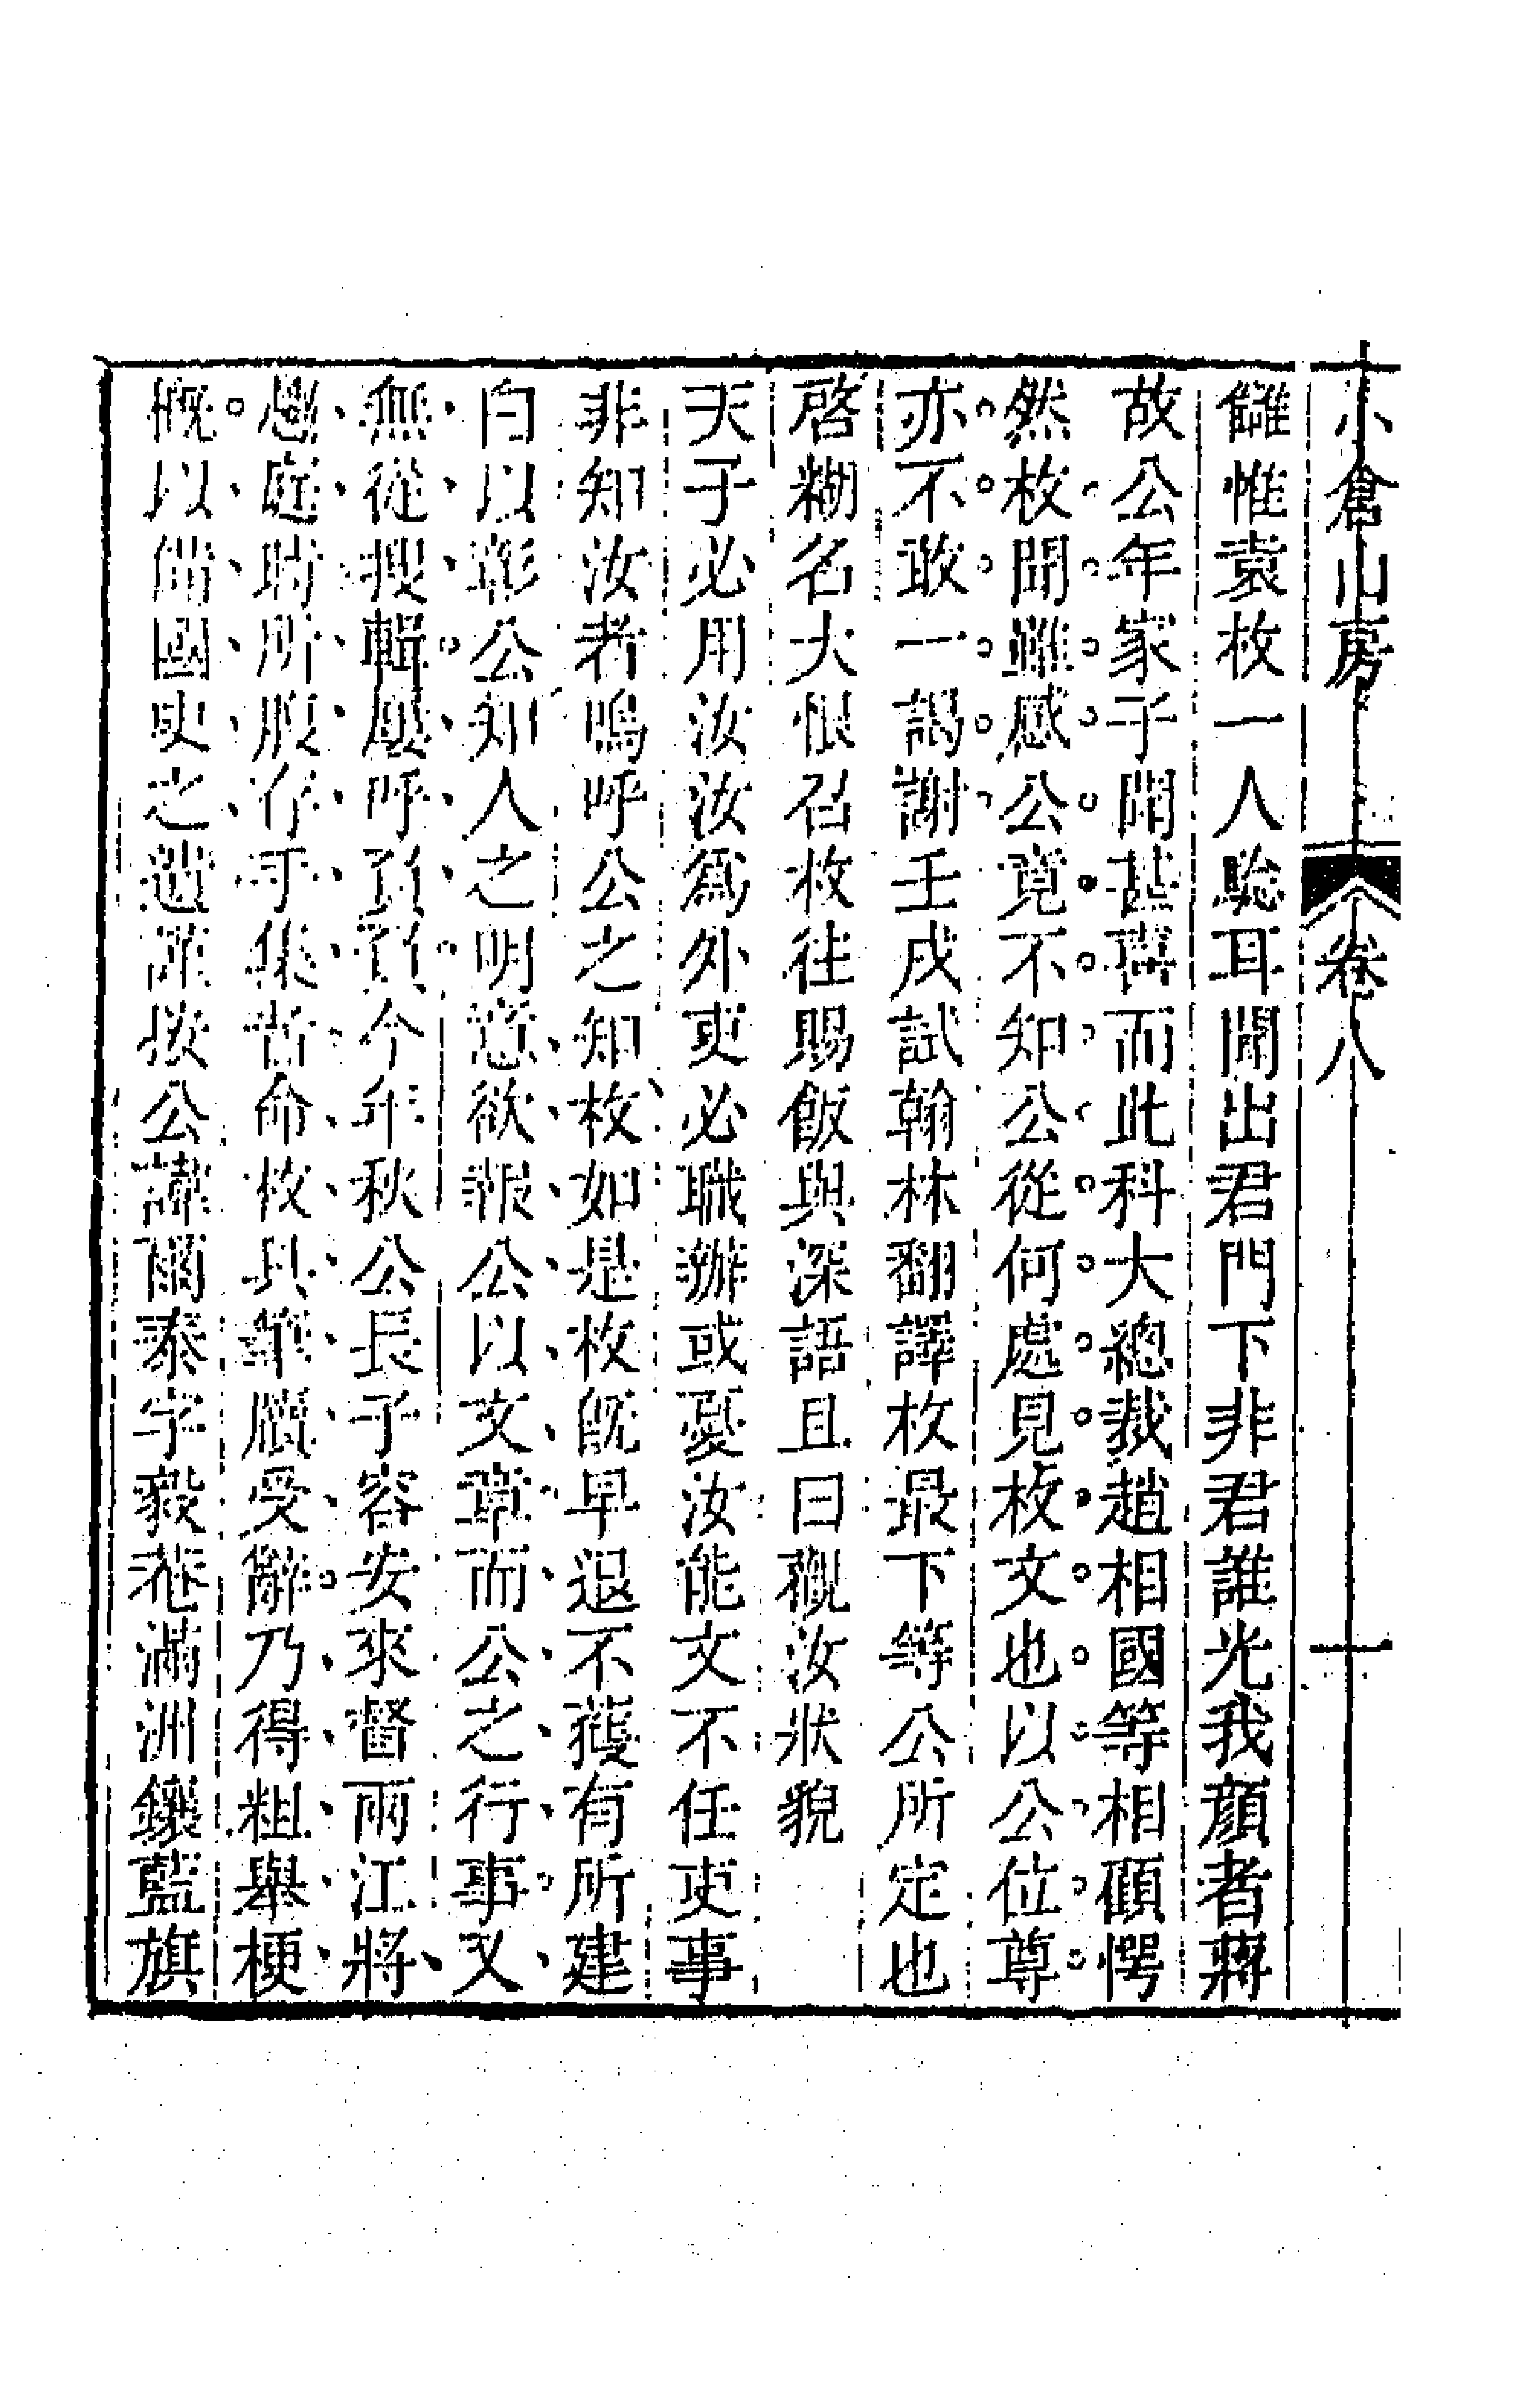 小倉山房 卷八 十
讎惟袁枚一人聡耳聞出君門下非君誰光我顔者蔣
故公年家子聞甚喜而此科大總裁趙相國等相顧愕
然枚聞雖感公竟不知公從何處見枚文也以公位尊
亦不敢一謁謝壬戌試翰林翻譯枚最下等公所定也
啓糊名大恨召枚往賜飯與深語且曰觀汝狀貌
天子必用汝汝爲外吏必職辦或憂汝能文不任吏事
非知汝者嗚呼公之知枚如是枚既早退不獲有所建
白以彰公知人之明意欲報公以文章而公之行事又
無從搜輯屢呼負負今年秋公長子容安來督兩江將
趨庭時所服存手集者命枚具筆牘受辭乃得粗舉梗
概以備國史之遺謹按公諱爾泰字毅菴滿洲鑲藍旗